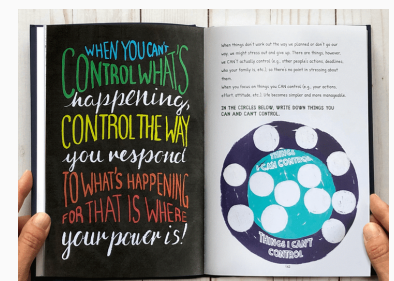 WHEN YOU CAN'T
CONTROL WHAT'S
happening,
CONTROL THE WAY
you respond
TO WHAT'S HAPPENING
FOR THAT IS WHERE
your power is!
When things don't work out the way we planned or don't go our
way, we might stress out and give up. There are things, however,
we CAN'T actually control (e.g., other people's actions, deadlines,
who your family is, etc.), so there's no point in stressing about
them.
When you focus on things you CAN control (e.g., your actions,
effort, attitude, etc.), life becomes simpler and more manageable.
IN THE CIRCLES BELOW, WRITE DOWN THINGS YOU
CAN AND CAN'T CONTROL.
THINGS
I CAN CONTROL
THINGS I CAN'T
CONTROL